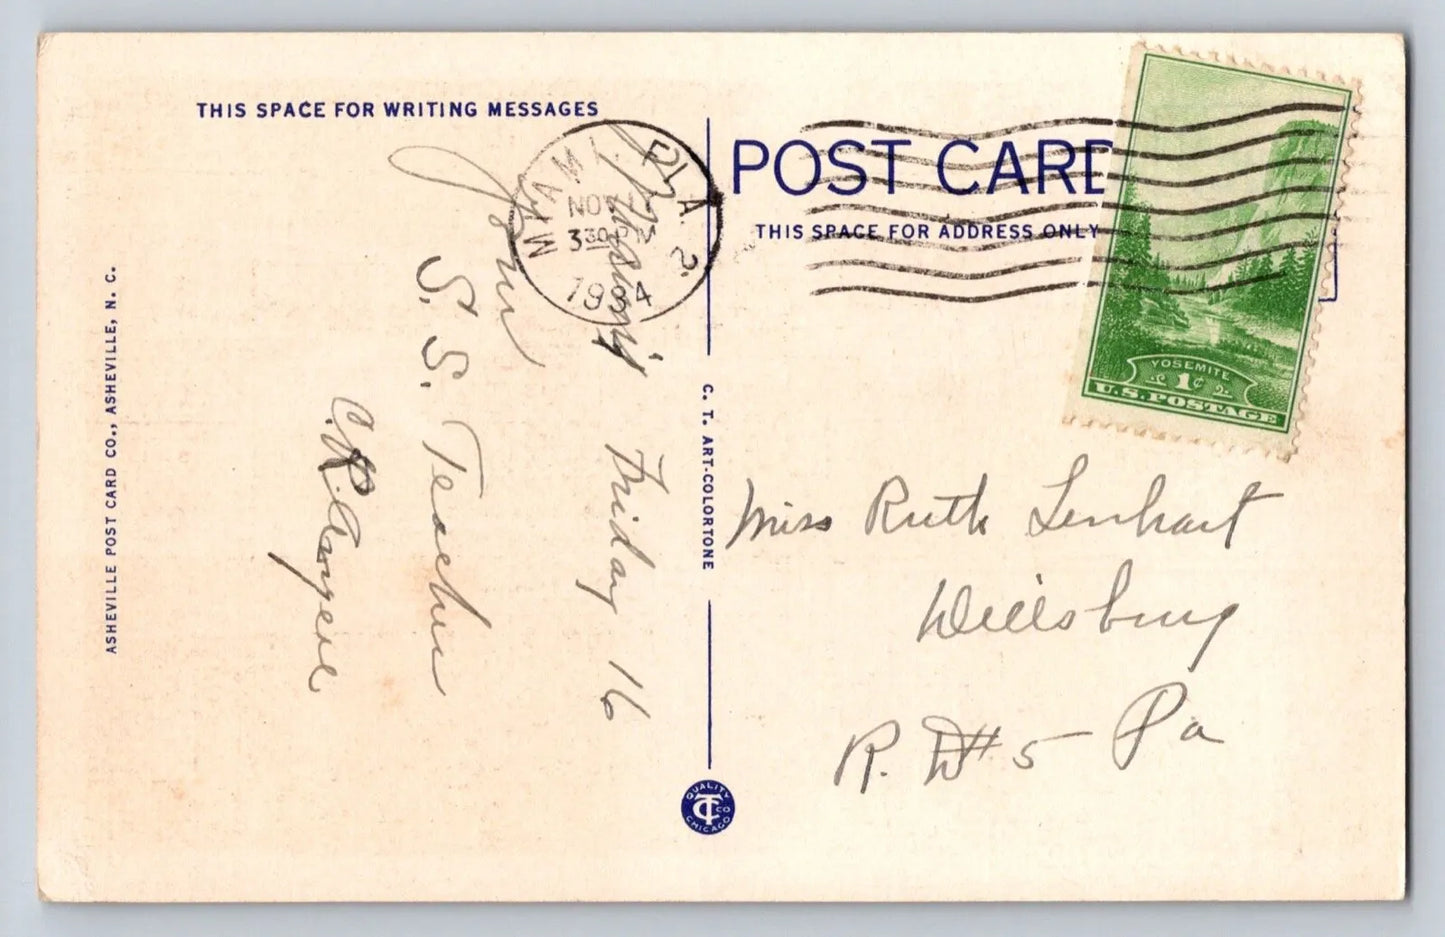 THIS SPACE FOR WRITING MESSAGES
POST CARD
THIS SPACE FOR ADDRESS ONLY
MIAMI, FLA. 2
NOV
3 30 PM
1934
YOSEMITE
1¢
U.S. POSTAGE
Friday 16
Your
S. S. Teacher
C.R.
Miss Ruth Lenhart
Dillsburg
R. D # 5 Pa
ASHEVILLE POST CARD CO., ASHEVILLE, N. C.
C. T. ART-COLORTONE
QUALITY
CT CO
CHICAGO